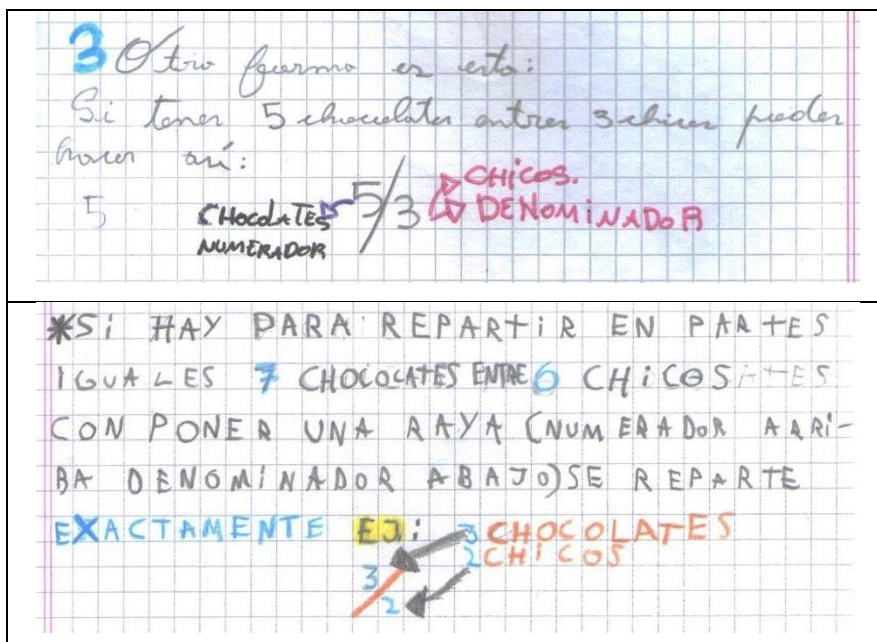 3 Otra forma es esta:
Si tenes 5 chocolates entres 3 chicos podes
hacer así:
5 CHOCOLATES NUMERADOR 5/3 CHICOS. DENOMINADOR
*Si HAY PARA REPARTiR EN PARTES
IGUALES 7 CHOCOLATES ENTRE 6 CHiCOS
CON PONER UNA RAYA (NUMERADOR ARRi-
BA DENOMiNADOR ABAJO) SE REPARTE
EXACTAMENTE EJ: 3 CHOCOLATES
2 CHiCOS
3/2